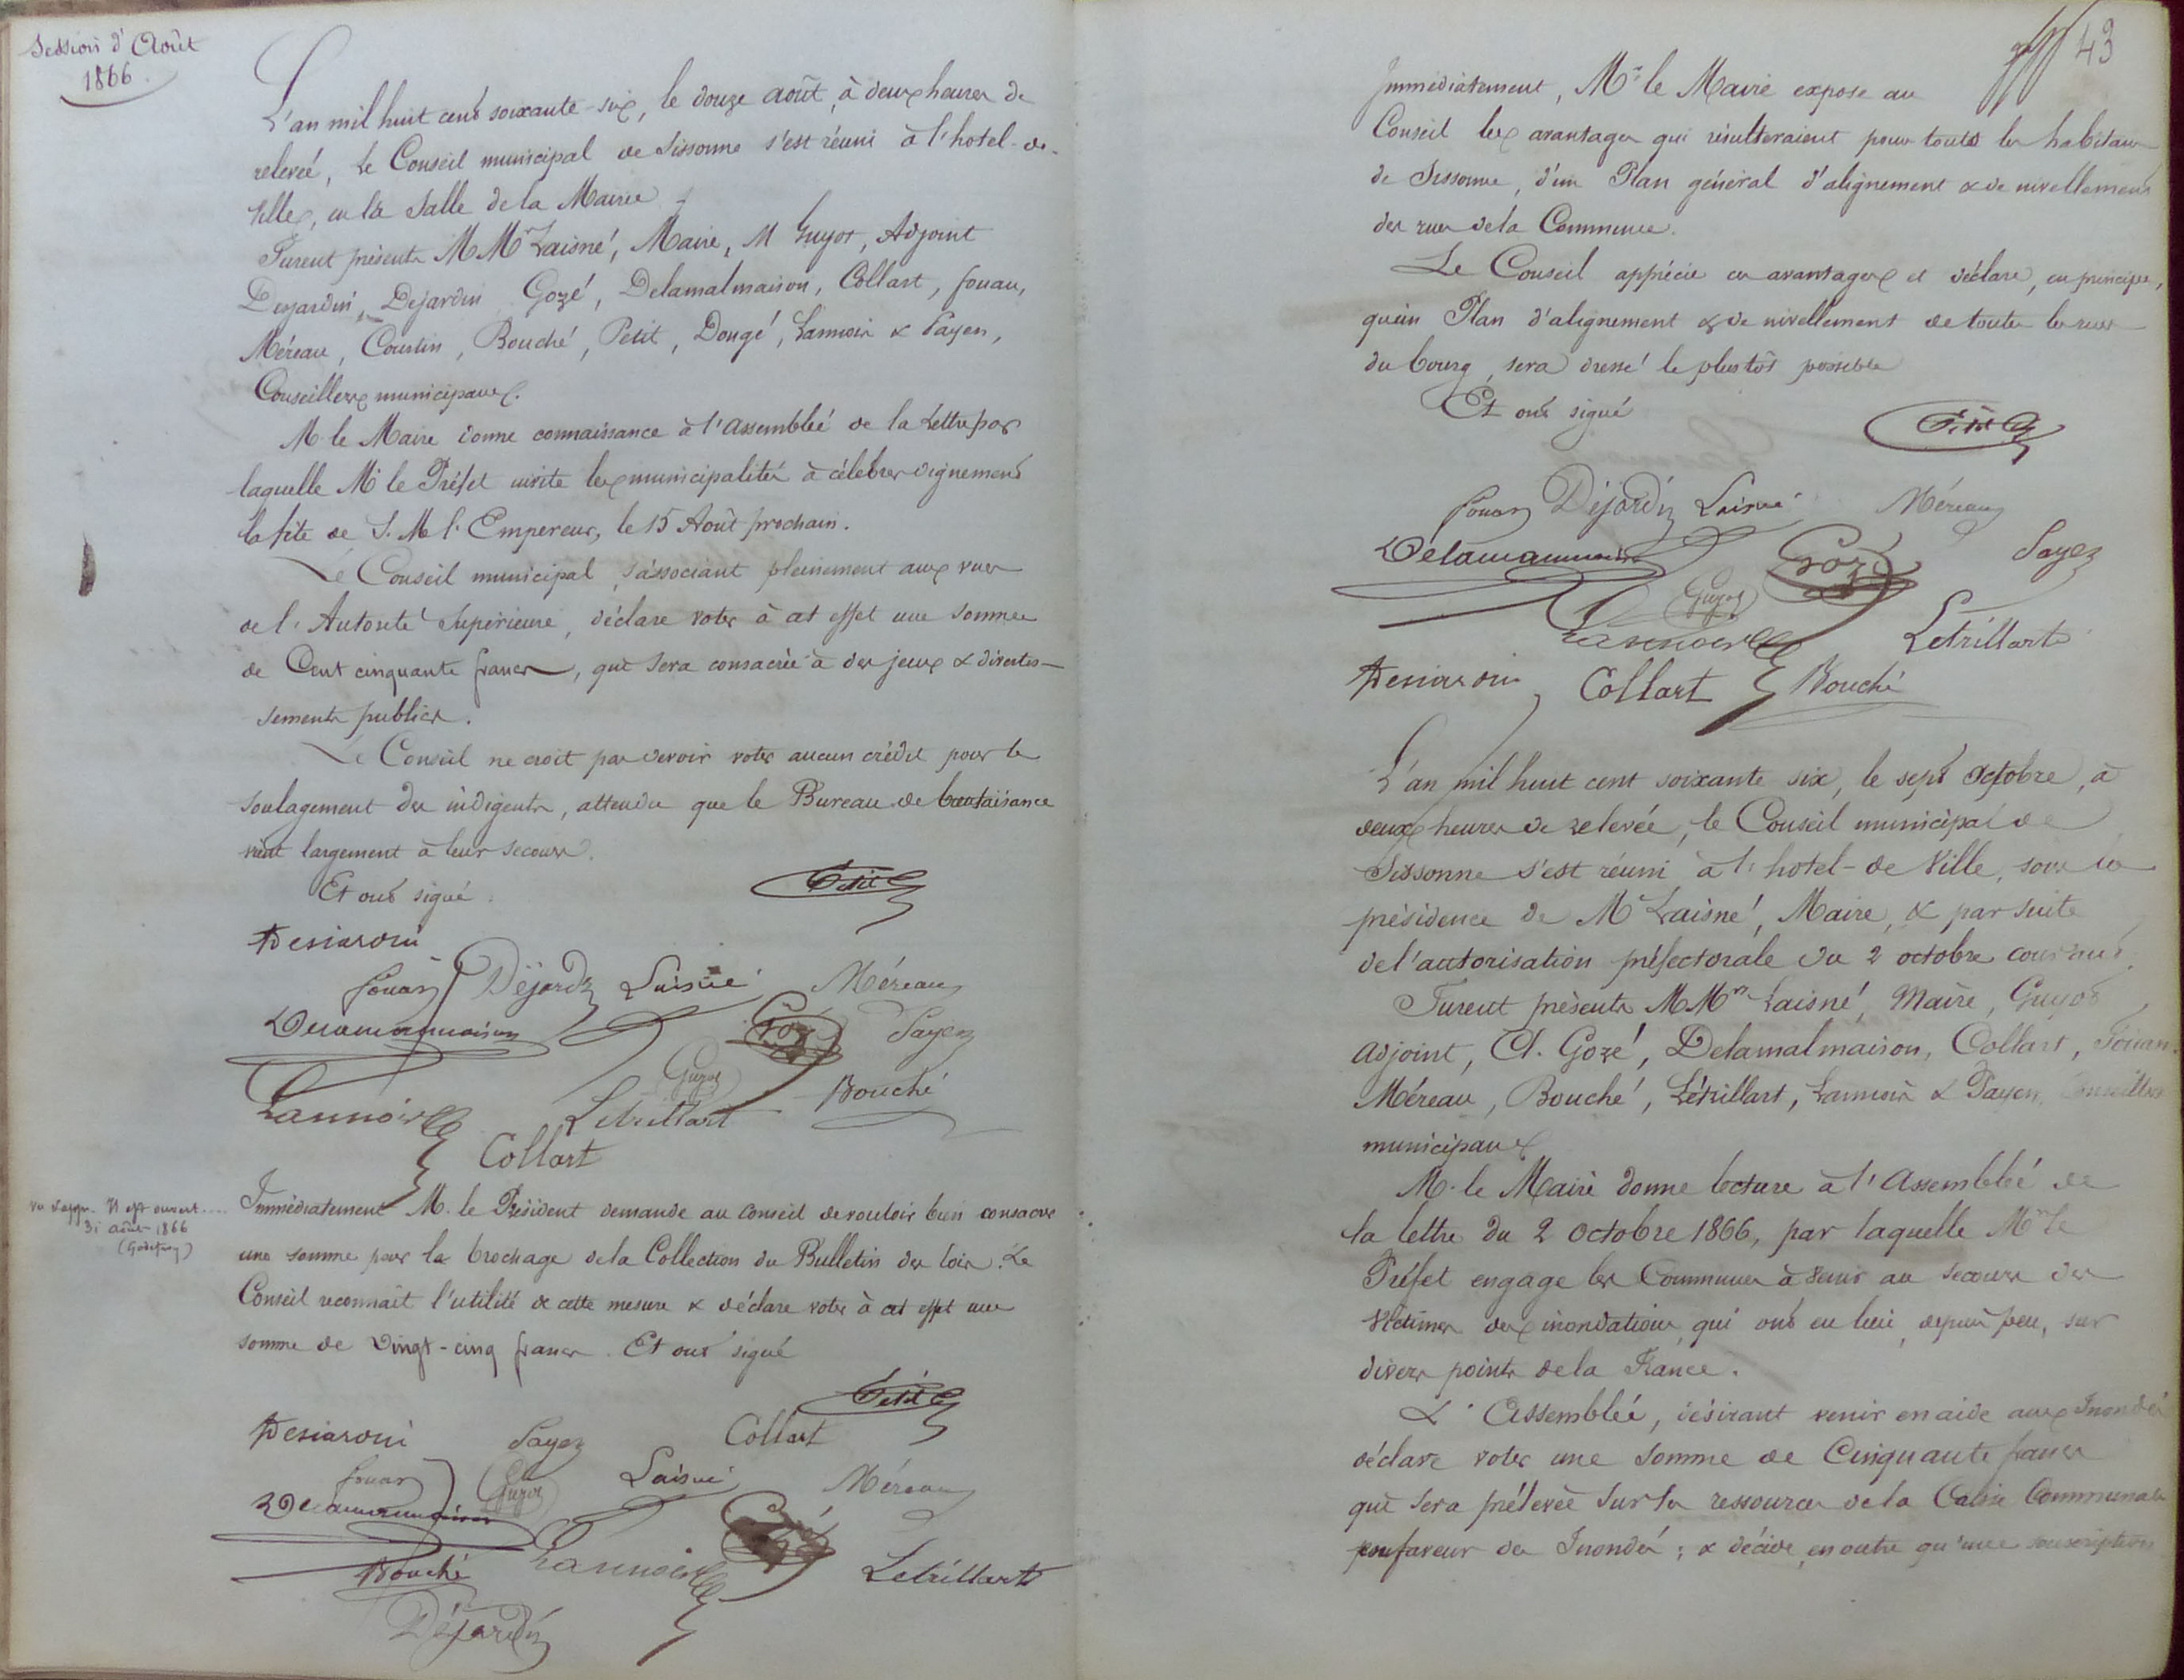 Session d'Août
1866.
L'an mil huit cent soixante-six, le douze août, à deux heures de
relevée, le Conseil municipal de Sissonne s'est réuni à l'hotel-de-
Ville, en la Salle de la Mairie
Furent présents MMrs Laisné, Maire, M Guyot, Adjoint
Desjardin, Dejardin Gozé, Delamalmaison, Collart, fouan,
Méreau, Courtin, Bouché, Petit, Dougé, Lannois & Payen,
Conseillers municipaux.
M. le Maire donne connaissance à l'Assemblée de la Lettre par
laquelle Mr le Préfet invite les municipalités à célébrer dignement
la fête de S. M. l'Empereur, le 15 Août prochain.
Le Conseil municipal, s'associant pleinement aux vues
de l'Autorité Supérieure, déclare voter à cet effet une somme
de Cent cinquante francs, qui sera consacrée à des jeux & divertis-
sements publics.
Le Conseil ne croit pas devoir voter aucun crédit pour le
soulagement des indigents, attendu que le Bureau de bienfaisance
vient largement à leur secours.
Et ont signé
Petit
Desjardin
fouan Déjardin Laisné Méreau
Delamalmaison Gozé Payen
Guyot
Lannois Letrillart Bouché
Collart
31 août 1866
Immédiatement M. le Président demande au Conseil de vouloir bien consacrer
une somme pour le brochage de la Collection du Bulletin des lois. Le
Conseil reconnaît l'utilité de cette mesure & déclare voter à cet effet une
somme de vingt-cinq francs. Et ont signé
Petit
Desjardin Payen Collart
fouan Guyot Laisné Méreau
Delamalmaison Gozé
Bouché Lannois Letrillart
Déjardin
43
Immédiatement, Mr le Maire expose au
Conseil les avantages qui résulteraient pour touts les habitans
de Sissonne, d'un Plan général d'alignement & de nivellement
des rues de la Commune.
Le Conseil apprécie ces avantages et déclare, en principe,
qu'un Plan d'alignement & de nivellement de toutes les rues
du bourg, sera dressé le plus tôt possible
Et ont signé
Petit
fouan Déjardin Laisné Méreau
Delamalmaison Gozé Payen
Guyot
Lannois Letrillart
Desjardin Collart Bouché
L'an mil huit cent soixante six, le sept octobre, à
deux heures de relevée, le Conseil municipal de
Sissonne s'est réuni à l'hotel-de Ville, sous la
présidence de Mr Laisné, Maire, & par suite
de l'autorisation préfectorale du 2 octobre courant.
Furent présents MMrs Laisné, Maire, Guyot
adjoint, Ct. Gozé, Delamalmaison, Collart, Fouan.
Méreau, Bouché, Létrillart, Lannois & Payen, Conseillers
municipaux
M. le Maire donne lecture à l'Assemblée de
la lettre du 2 Octobre 1866, par laquelle Mr le
Préfet engage les Communes à venir au secours des
victimes des inondations qui ont eu lieu, depuis peu, sur
divers points de la France.
L'Assemblée, désirant venir en aide aux Inondés
déclare voter une somme de Cinquante francs
qui sera prélevée sur les ressources de la Caisse Communale
en faveur des Inondés ; & décide, en outre qu'une souscription